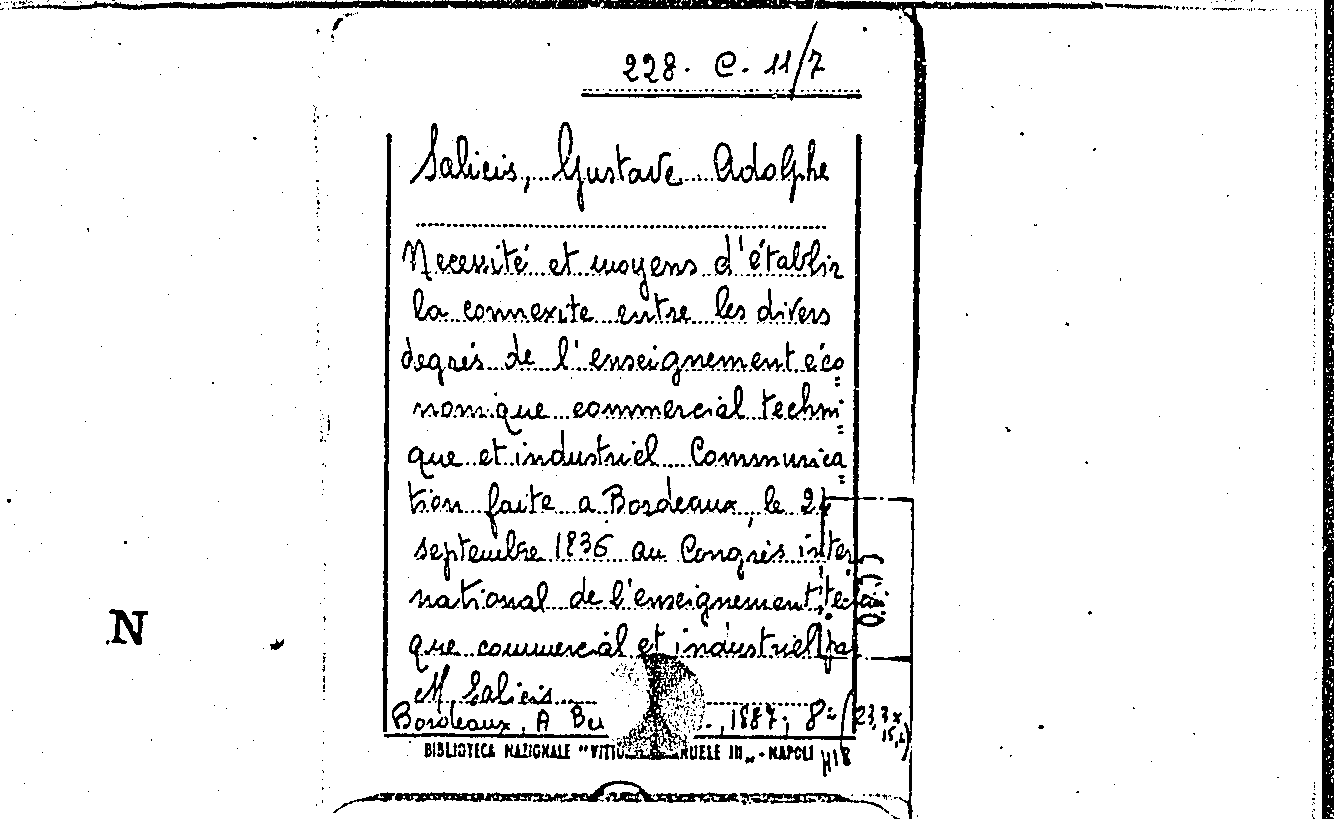 228. C. 11/7
Salicis, Gustave Adolphe
Necessité et moyens d'établir
la connexite entre les divers
degrés de l'enseignement éco=
nomique commercial techni=
que et industriel Communica=
tion faite a Bordeaux, le 24
septembre 1836 au Congrès inter
national de l'enseignement techni
que commercial et industriel par
M. Salicis
Bordeaux, A Be , 1887; 8º (23,3x
15,2)
BIBLIOTECA NAZIONALE "VITTO NUELE III„ - NAPOLI
N